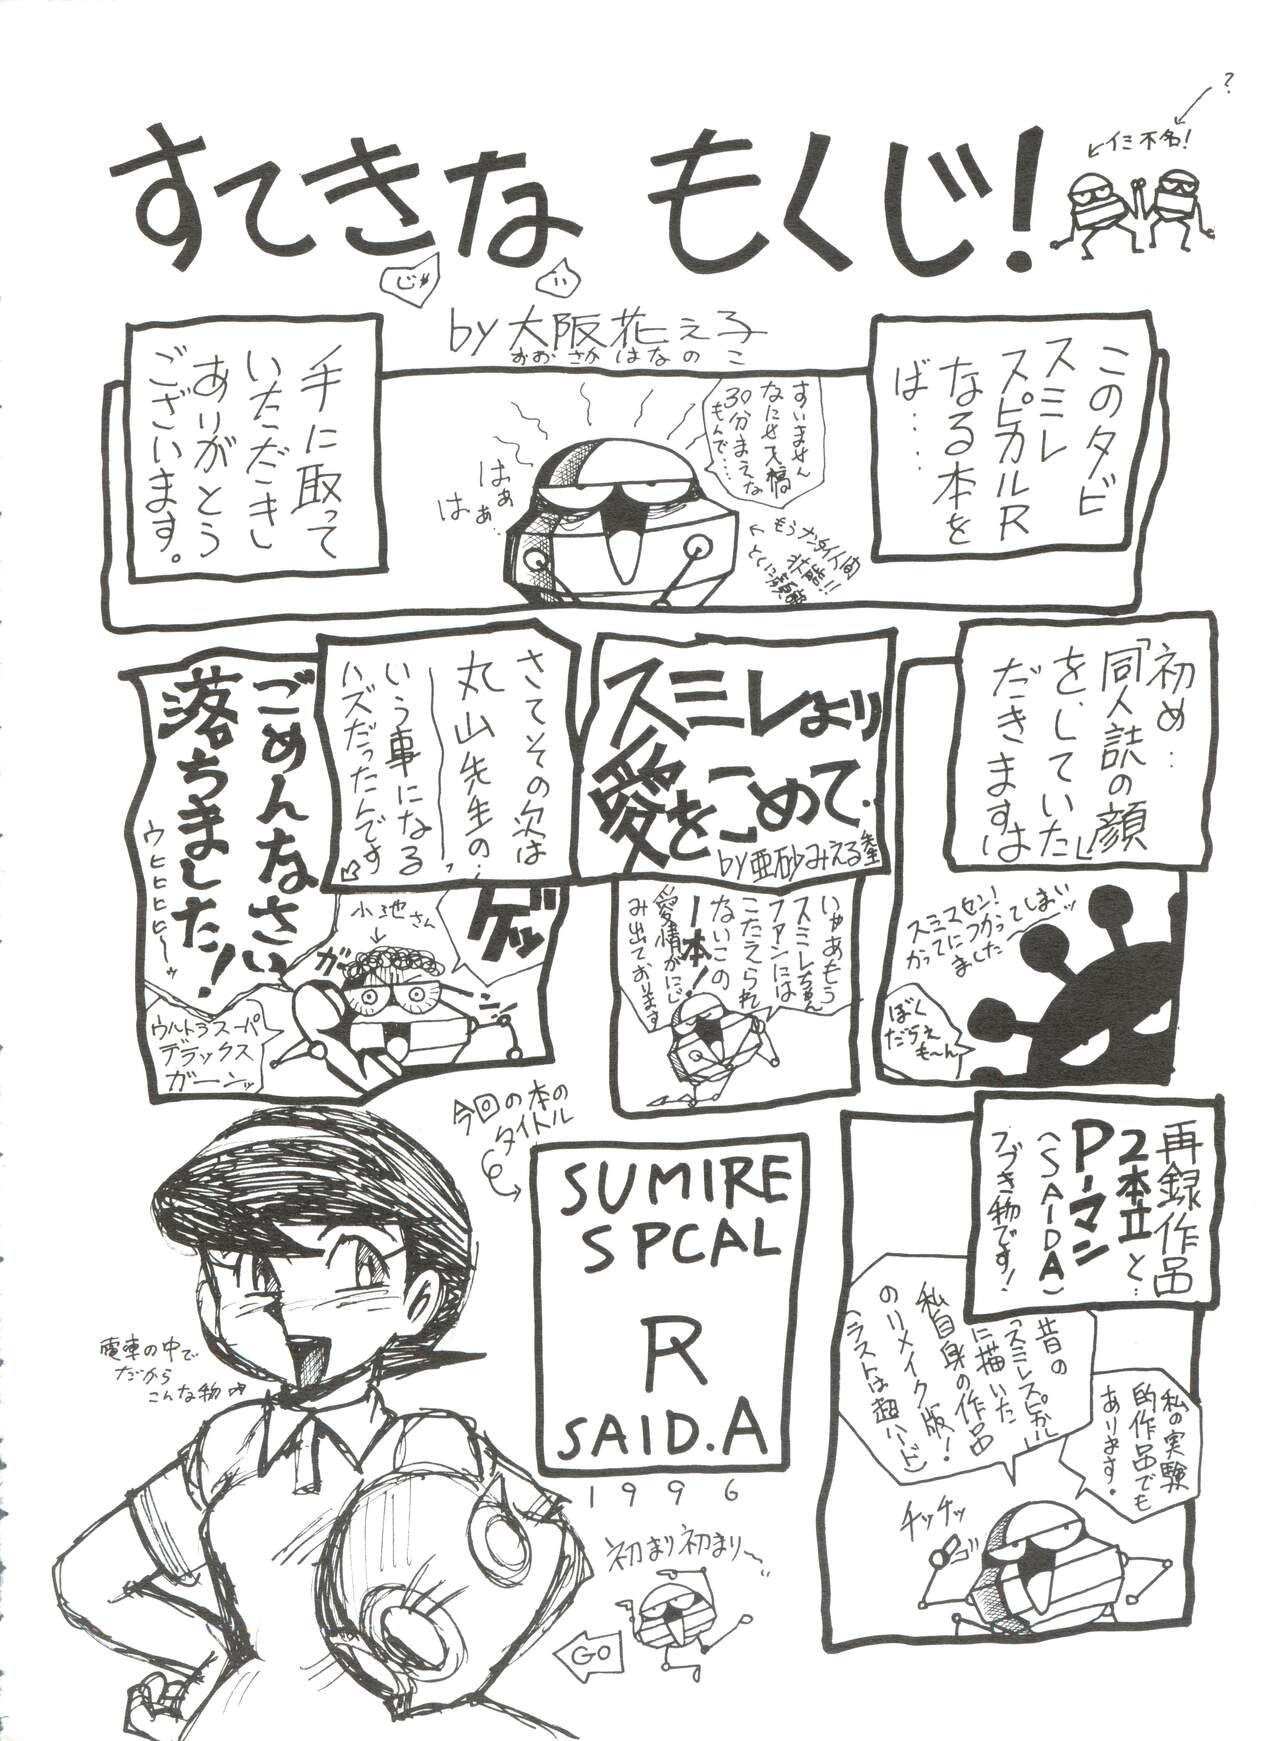 ?
←イミ不名!
すてきな もくじ!
じゃ
by 大阪花え子
おおさかはなのこ
このタビ
スミレ
スピカルR
なる本を
ば……
手に取って
いただきし
ありがとう
ございます。
すいません
なにせ入稿
30分まえな
もんで…
はぁぁ
はぁ…
もうナンタイ人間
状態!!
とくに顔
初め…
「同人誌の顔」
を、していた
だきますは
スミマセン!
かってにつかってしまいッ
ました〜
ぼく
だらぇ
も〜ん
スミレより
愛をこめて.
by亜砂みえる先生
いやあもう
スミレちゃん
ファンには
こたえられ
ないこの
一本!
愛情がにじ
み出ております
さてその次は
丸山先生の…
いう事になる
ハズだったんです
ゲッ
小池さん
ガーン
ごめんなさい
落ちました!
ウヒヒヒヒ〜ッ
ウルトラスーパー
デラックス
ガーンッ
再録作品
2本立と…
P-マン
(SAIDA)
ツヅき物です!
昔の
「スミレスピカル」
に描いた
私自身の作品
のリメイク版!
(ラストは超ハード)
私の実験
的作品でも
あります.
チッチッ
今回の本の
タイトル
SUMIRE
SPCAL
R
SAID.A
1996
電車の中で
だから
こんな物
初まり初まり〜
GO